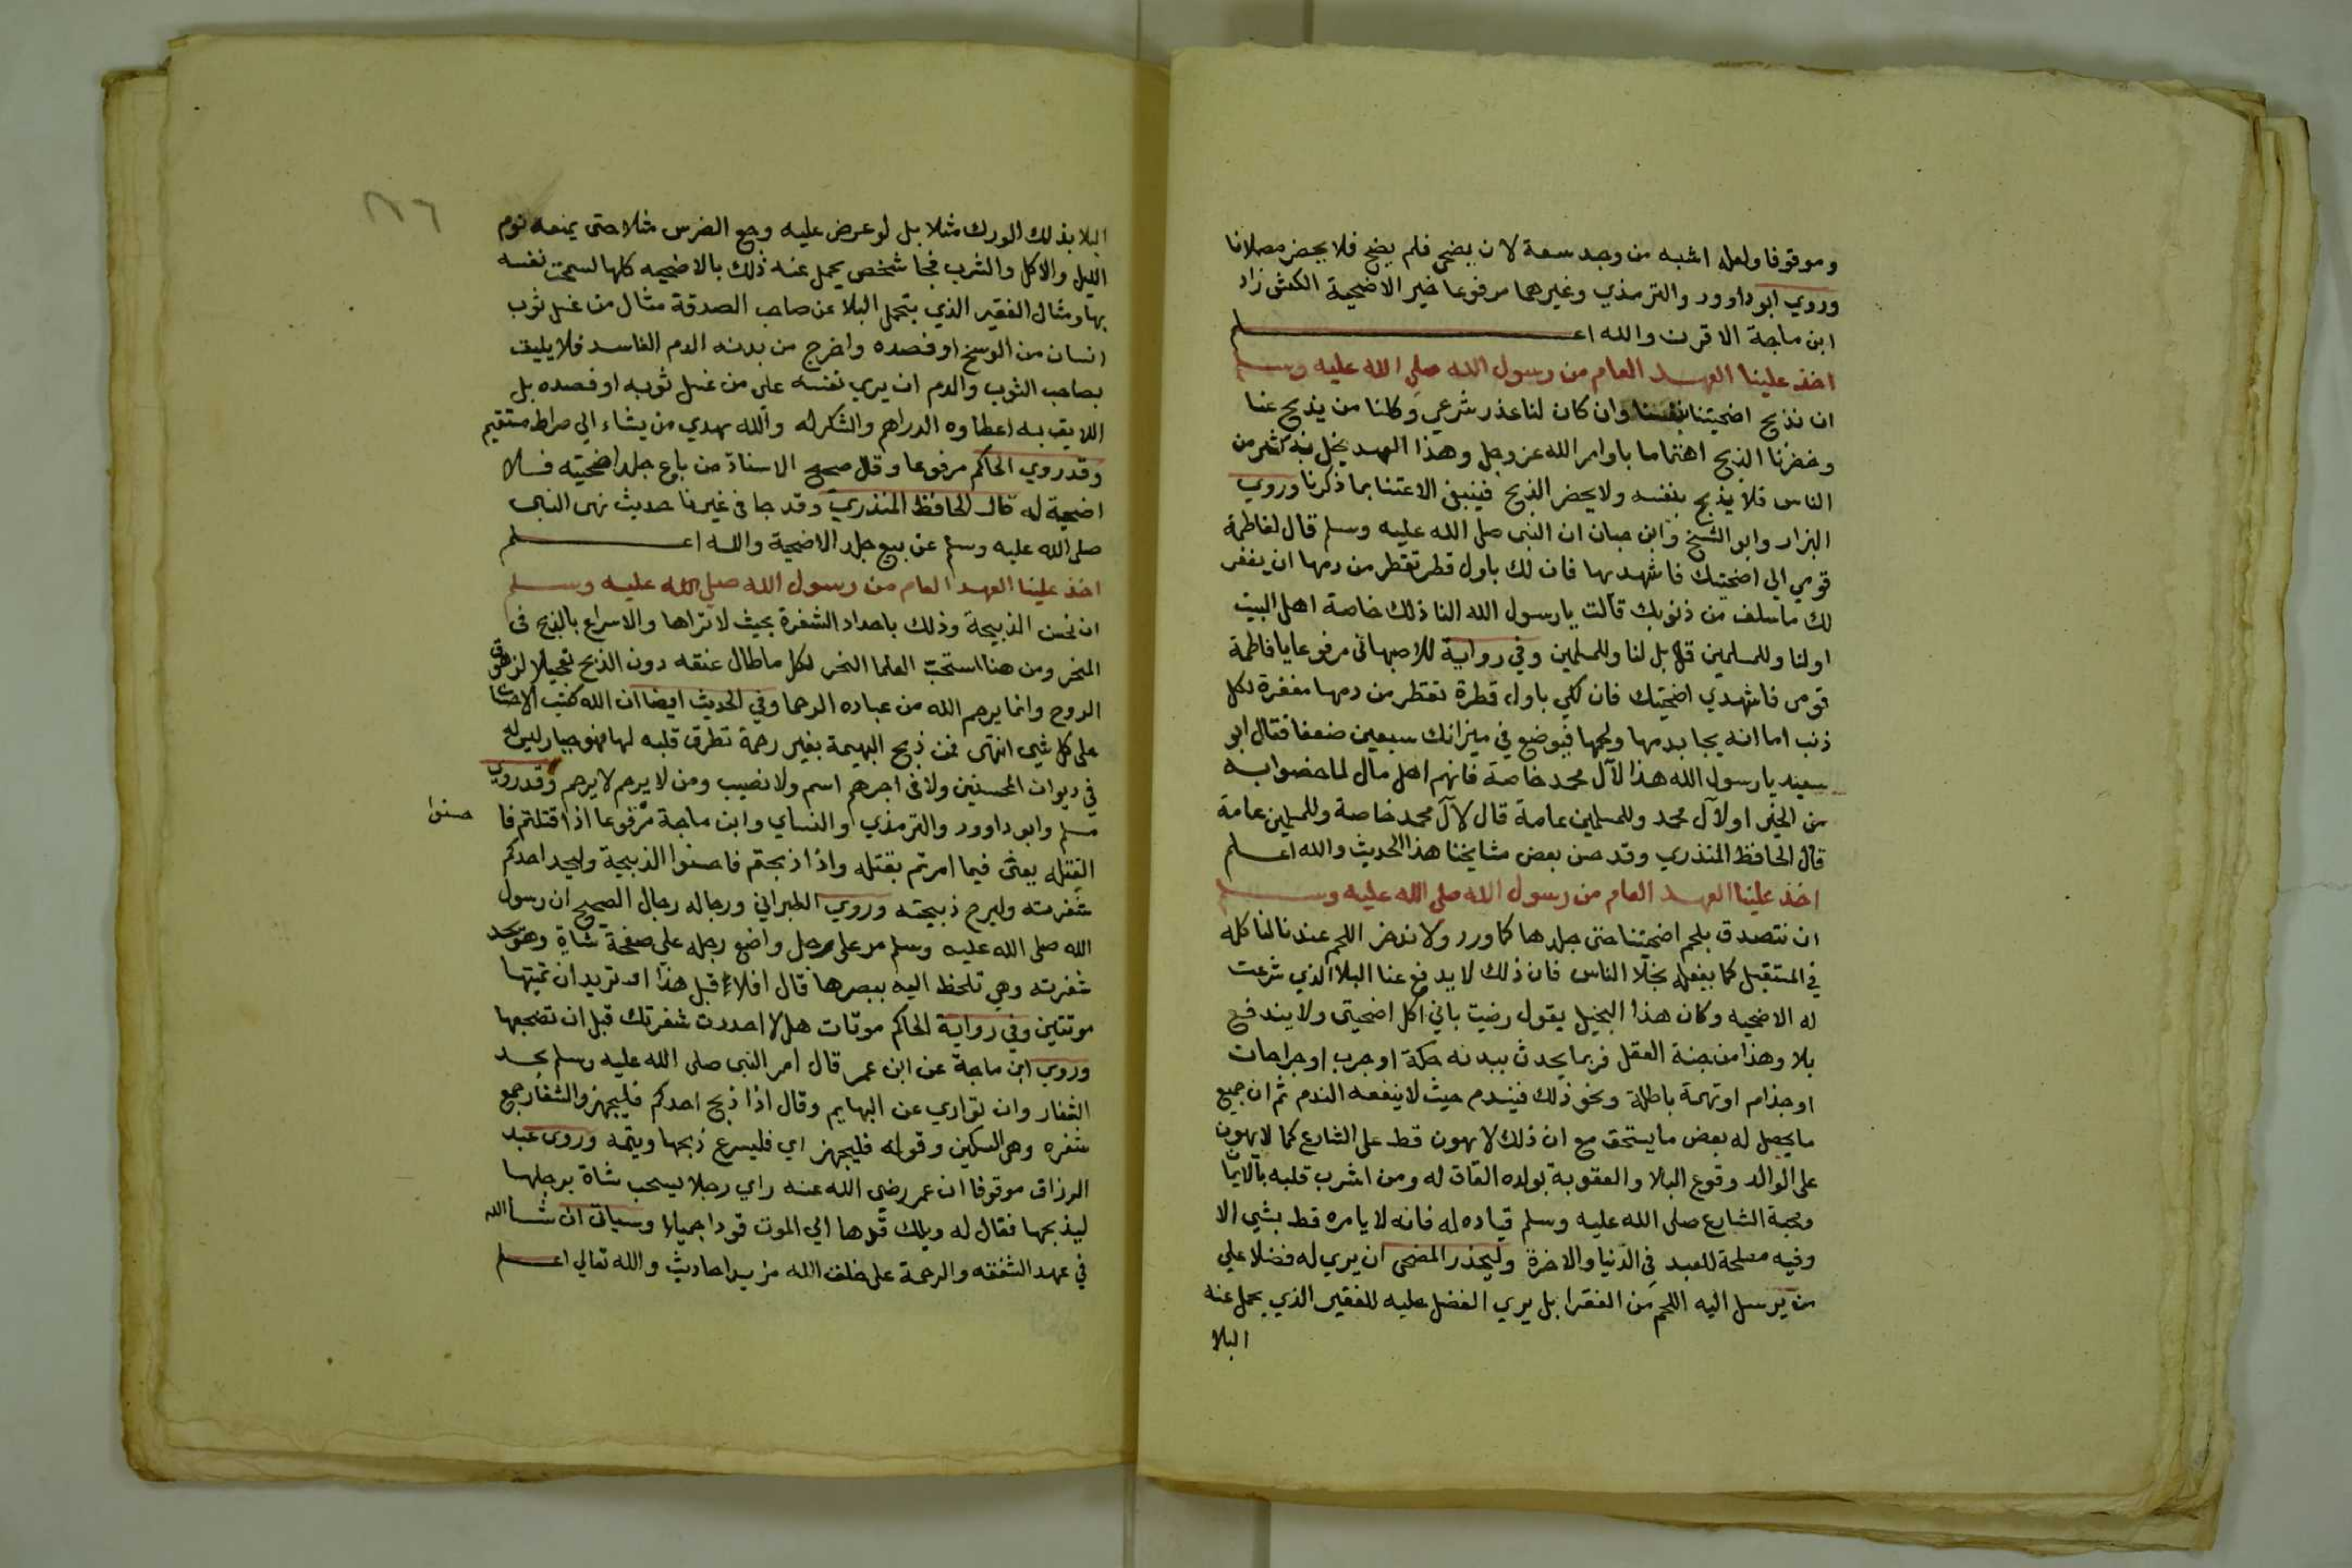 وموقوفا ولعله اشبه من وجد سعة لان يضحي فلم يضح فلا يحضر مصلانا
وروي ابو داوود والترمذي وغيرهما مرفوعا خير الاضحية الكبش زاد
ابن ماجة الاقرن والله اعلم
اخذ علينا العهد العام من رسول الله صلي الله عليه وسلم
ان نذبح اضحيتنا بنفسنا وان كان لنا عذر شرعي وكلنا من يذبح عنا
وحضرنا الذبح اهتماما باوامر الله عز وجل وهذا العهد يخل به كثير من
الناس فلا يذبح بنفسه ولا يحضر الذبح فينبغي الاعتنا بما ذكرنا وروي
البزار وابو الشيخ وابن حبان ان النبي صلى الله عليه وسلم قال لفاطمة
قومي الي اضحيتك فاشهديها فان لك باول قطر تقطر من دمها ان يغفر
لك ما سلف من ذنوبك قالت يا رسول الله النا ذلك خاصة اهل البيت
او لنا وللمسلمين قال بل لنا وللمسلمين وفي رواية للاصبهاني مرفوعا يا فاطمة
قومي فاشهدي اضحيتك فان لكي باول قطرة تقطر من دمها مغفرة لكل
ذنب اما انه يجا بدمها ولحمها فيوضع في ميزانك سبعين ضعفا فقال ابو
سعيد يا رسول الله هذا لآل محمد خاصة فانهم اهل مال لما خصوا به
من الخير او لآل محمد وللمسلمين عامة قال لآل محمد خاصة وللمسلمين عامة
قال الحافظ المنذري وقد حسن بعض مشايخنا هذا الحديث والله اعلم
اخذ علينا العهد العام من رسول الله صلي الله عليه وسلم
ان نتصدق بلحم اضحيتنا حتى جلدها كما ورد ولا ندخر اللحم عندنا لناكله
في المستقبل كما يفعله بخلا الناس فان ذلك لا يدفع عنا البلا الذي شرعت
له الاضحيه وكان هذا البخيل يقول رضيت باني اكل اضحيتي ولا يندفع
بلا وهذا من خفة العقل فربما يحدث ببدنه حكة او جرب او جراحات
او جذام او تهمة باطلة ونحو ذلك فيندم حيث لا ينفعه الندم ثم ان جميع
ما يحصل له بعض ما يستحق مع ان ذلك لا يهون قط على الشارع كما لا يهون
على الوالد وقوع البلا والعقوبة بولده العاق له ومن اشرب قلبه بالايمان
ومحبة الشارع صلى الله عليه وسلم قياده له فانه لا يامره قط بشي الا
وفيه مصلحة للعبد في الدنيا والاخرة وليحذر المضحي ان يري له فضلا علي
من يرسل اليه اللحم من الفقرا بل يري الفضل عليه للفقير الذي يحمل عنه
البلا
٢١٦
البلا بذلك الورك مثلا بل لو عرض عليه وجع الضرس مثلا حتى يمنعه نوم
الليل والاكل والشرب فجا شخص يحمل عنه ذلك بالاضحيه كلها لسمحت نفسه
بها ومثال الفقير الذي يتحمل البلا عن صاحب الصدقة مثال من غسل ثوب
انسان من الوسخ او فصده واخرج من بدنه الدم الفاسد فلا يليق
بصاحب الثوب والدم ان يري نفسه علي من غسل ثوبه او فصده بل
اللايق به اعطاوه الدراهم والشكر له والله يهدي من يشاء الي صراط مستقيم
وقد روي الحاكم مرفوعا وقال صحيح الاسناد من باع جلد اضحيته فلا
اضحية له قال الحافظ المنذري وقد جا في غيرما حديث نهى النبي
صلى الله عليه وسلم عن بيع جلد الاضحية والله اعلم
اخذ علينا العهد العام من رسول الله صلي الله عليه وسلم
ان نحسن الذبيحة وذلك باحداد الشفرة بحيث لا تراها والاسراع بالذبح في
المنحر ومن هنا استحب العلما النحر لكل ما طال عنقه دون الذبح تعجيلا لزهوق
الروح وانما يرحم الله من عباده الرحما وفي الحديث ايضا ان الله كتب الاحسان
على كل شي انتهى فمن ذبح البهيمة بغير رحمة تطرق قلبه لها فهو جبار ليس له
في ديوان المحسنين ولا في اجرهم اسم ولا نصيب ومن لا يرحم لا يرحم وقد روي
مسلم وابو داوود والترمذي والنساي وابن ماجة مرفوعا اذا قتلتم فاحسنوا
القتله يعني فيما امرتم بقتله واذا ذبحتم فاحسنوا الذبيحة وليحد احدكم
شفرته وليرح ذبيحته وروي الطبراني ورجاله رجال الصحيح ان رسول
الله صلى الله عليه وسلم مر على رجل واضع رجله على صفحة شاة وهو يحد
شفرته وهي تلحظ اليه ببصرها قال افلا قبل هذا او تريد ان تميتها
موتتين وفي رواية الحاكم موتات هلا احددت شفرتك قبل ان تضجعها
وروي ابن ماجة عن ابن عمر قال امر النبي صلى الله عليه وسلم بحد
الشفار وان تواري عن البهايم وقال اذا ذبح احدكم فليجهز والشفار جمع
شفره وهي السكين وقوله فليجهز اي فليسرع ذبحها ويتمه وروى عبد
الرزاق موقوفا ان عمر رضي الله عنه راي رجلا يسحب شاة برجلها
ليذبحها فقال له ويلك قدها الي الموت قودا جميلا وسياتي ان شا الله
في عهد الشفقه والرحمة على خلق الله مزيد احاديث والله تعالي اعلم